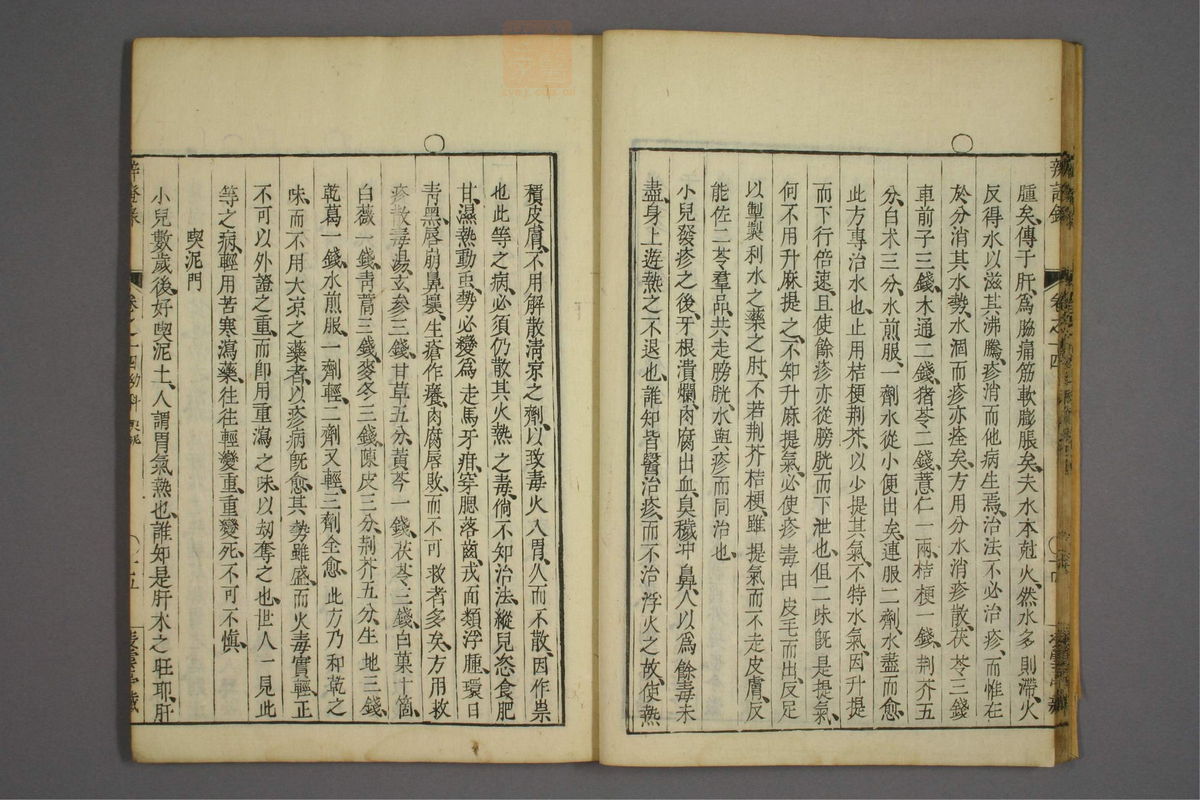 腫矣、傳于肝、爲脇痛筋軟膨脹矣、夫水本尅火、然水多則滯、火
反得水以滋其沸騰、疹消而他病生焉、治法不必治疹、而惟在
於分消其水勢、水涸而疹亦痊矣、方用分水消疹散、茯苓三錢
車前子三錢、木通二錢、猪苓二錢、薏仁一兩、桔梗一錢、荆芥五
分、白术三分、水煎服、一劑水從小便出矣、連服二劑、水盡而愈
此方專治水也、止用桔梗荆芥、以少提其氣、不特水氣、因升提
而下行倍速、且使餘疹亦從膀胱而下泄也、但二味旣是提氣、
何不用升麻提之、不知升麻提氣、必使疹毒由皮毛而出、反足
以掣製利水之藥之肘、不若荆芥桔梗、雖提氣而不走皮膚、反
能佐二苓羣品、共走膀胱、水與疹而同治也、
小兒發疹之後、牙根潰爛、肉腐出血、臭穢冲鼻、人以爲餘毒未
盡、身上遊熱之不退也、誰知皆醫治疹、而不治浮火之故、使熱
積皮膚、不用解散淸凉之劑、以致毒火入胃、久而不散、因作祟
也、此等之病、必須仍散其火熱之毒、倘不知治法、縱兒恣食肥
甘、濕熱動䖝、勢必變爲走馬牙疳、穿腮落齒、或面類浮腫、環口
靑黑、唇崩鼻壞、生瘡作癢、肉腐唇敗、而不可救者多矣、方用救
疹散毒湯、玄參三錢、甘草五分、黃芩一錢、茯苓三錢、白菓十箇、
白薇一錢、靑蒿三錢、麥冬三錢、陳皮三分、荆芥五分、生地三錢、
乾葛一錢、水煎服、一劑輕、二劑又輕、三劑全愈、此方乃和乾之
味、而不用大凉之藥者、以疹病旣愈、其勢雖盛、而火毒實輕、正
不可以外證之重、而卽用重瀉之味、以刼奪之也、世人一見此
等之病、輕用苦寒瀉藥、往往輕變重、重變死、不可不愼、
喫泥門
小兒數歲後、好喫泥土、人謂胃氣熱也、誰知是肝木之旺耶、肝